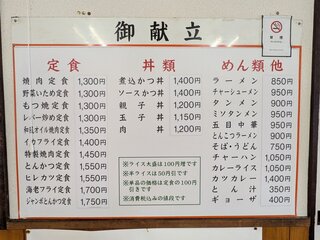 御献立
禁煙
定食
焼肉定食 1,300円
野菜いため定食 1,300円
もつ焼定食 1,300円
レバー炒め定食 1,300円
和乱オイル焼肉定食 1,350円
イカフライ定食 1,400円
特製焼肉定食 1,450円
とんかつ定食 1,550円
ヒレカツ定食 1,550円
海老フライ定食 1,700円
ジャンボとんかつ定食 1,750円
丼類
煮込かつ丼 1,400円
ソースかつ丼 1,400円
親子丼 1,200円
玉子丼 1,150円
肉丼 1,200円
※ライス大盛は100円増です
※半ライスは50円引です
※単品の価格は定食の100円
引きです
※消費税込みの値段です
めん類他
ラーメン 850円
チャーシューメン 950円
タンメン 900円
ミソタンメン 950円
五目中華 950円
とんこつラーメン 900円
そば・うどん 750円
チャーハン 1,050円
カレーライス 1,050円
カツカレー 1,400円
とん汁 350円
ギョーザ 400円